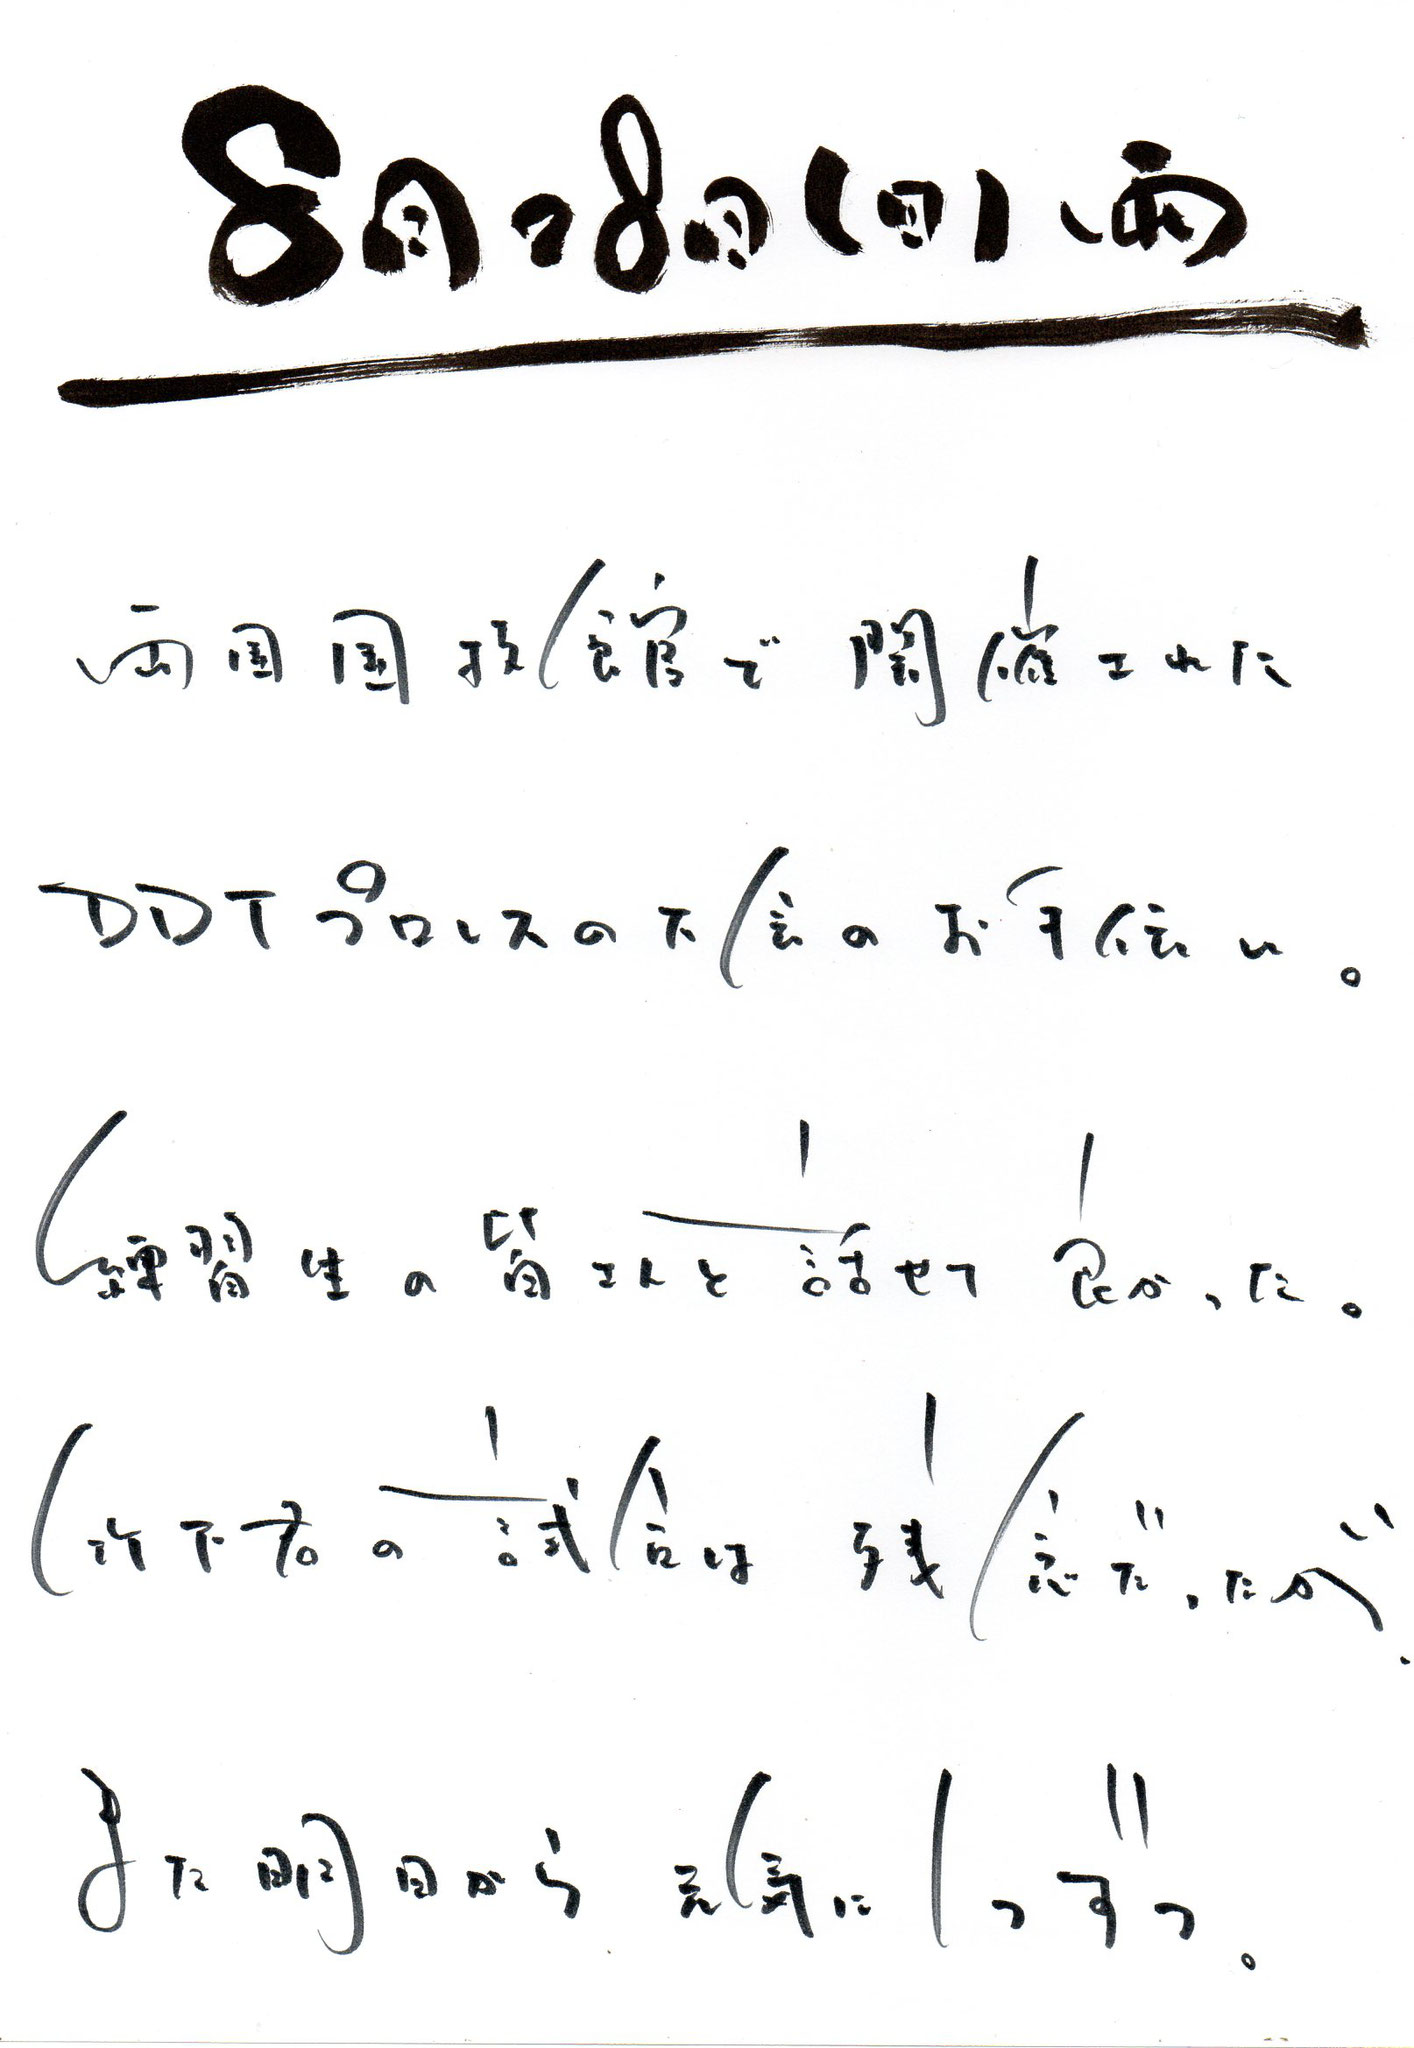 8月28日(日)雨
両国国技館で開催された
DDTプロレスの大会のお手伝い。
練習生の皆さんと話せて良かった。
竹下君の試合は残念だったが、
また明日から元気に1つずつ。